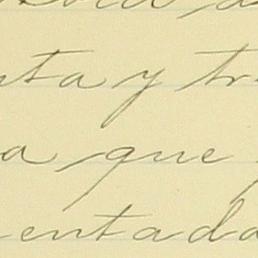 nta y tr
a que
entada